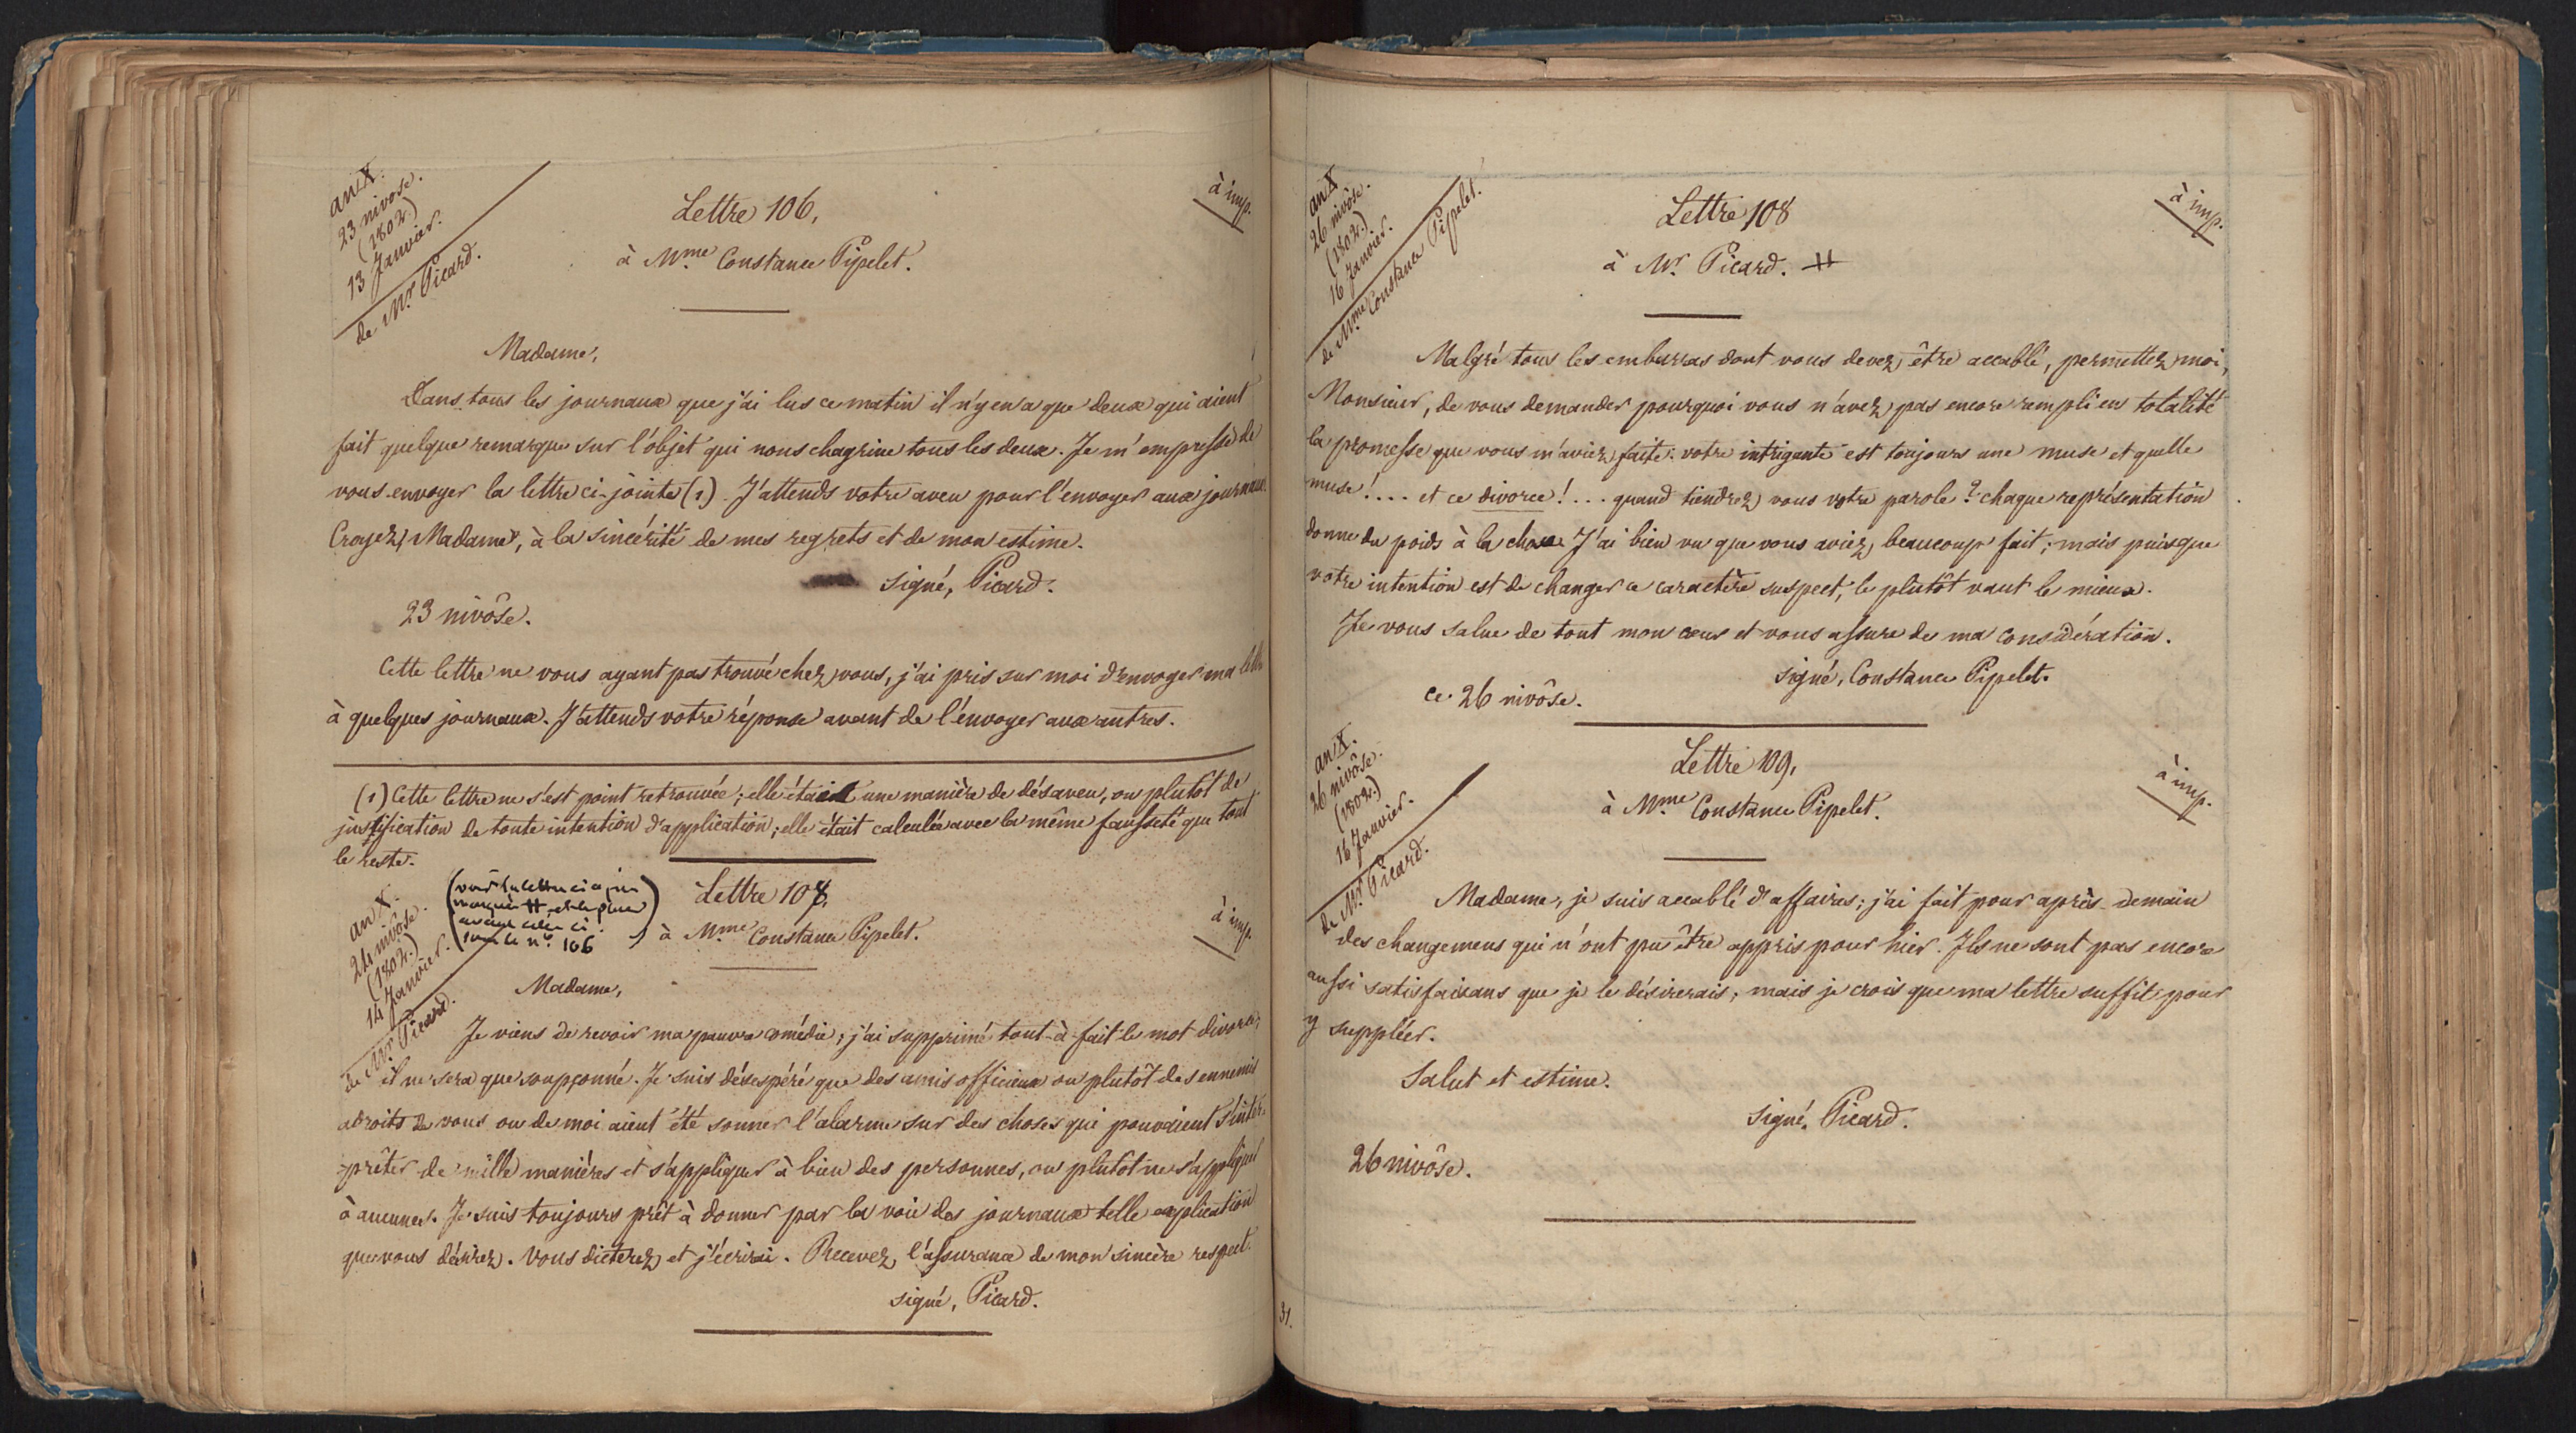 an X.
23 nivose.
(1802.)
13 Janvier.
de Mr. Picard.
à imp.
Lettre 106,
à Mme Constance Pipelet.
Madame,
Dans tous les journaux que j'ai lus ce matin il n'y en a que deux qui aient
fait quelque remarque sur l'objet qui nous chagrine tous les deux. Je m'empresse de
vous envoyer la lettre ci-jointe (1). J'attends votre aveu pour l'envoyer aux journaux.
Croyez, Madame, à la sincérité de mes regrets et de mon estime.
signé, Picard.
23 nivôse.
Cette lettre ne vous ayant pas trouvé chez vous, j'ai pris sur moi d'envoyer ma lettre
à quelques journaux. J'attends votre réponse avant de l'envoyer aux autres.
(1) Cette lettre ne s'est point retrouvée; elle était une manière de désaveu, ou plutôt de
justification de toute intention d'application; elle était calculée avec la même fausseté que tout
le reste.
an X.
24 nivôse.
(1802.)
14 Janvier.
de Mr Picard.
(voir la lettre ci
marquée H, et la
avant celle ci
le n°. 106)
à imp.
Lettre 107,
à Mme Constance Pipelet.
Madame,
Je viens de revoir ma pauvre comédie; j'ai supprimé tout-à-fait le mot divorce;
il ne sera que soupçonné. Je suis désespéré que des amis officieux ou plutôt des ennemis
adroits de vous ou de moi aient été sonner l'alarme sur des choses qui pouvaient s'inter-
prêter de mille manières et s'appliquer à bien des personnes, ou plutôt ne s'appliquer
à aucunes. Je suis toujours prêt à donner par la voie des journaux telle explication
que vous désirez. Vous dicterez et j'écrirai. Recevez, l'assurance de mon sincère respect.
signé, Picard.
an X
26 nivôse.
(1802.)
16 Janvier.
de Mme Constance Pipelet.
à imp.
Lettre 108
à Mr. Picard. H
Malgré tous les embarras dont vous devez être accablé, permettez moi,
Monsieur, de vous demander pourquoi vous n'avez pas encore rempli en totalité
la promesse que vous m'aviez faite. votre intrigante est toujours une muse et quelle
muse!.... et ce divorce!... quand tiendrez vous votre parole? chaque représentation
donne du poids à la chose J'ai bien vu que vous aviez beaucoup fait; mais puisque
votre intention est de changer ce caractère suspect, le plutôt vaut le mieux.
Je vous salue de tout mon cœur et vous assure de ma considération.
signé, Constance Pipelet.
ce 26 nivôse.
an X.
26 nivôse.
(1802.)
16 Janvier.
de Mr. Picard.
à imp.
Lettre 109,
à Mme Constance Pipelet.
Madame, je suis accablé d'affaires; j'ai fait pour après-demain
des changemens qui n'ont pu être appris pour hier. Ils ne sont pas encore
aussi satisfaisans que je le désirerais, mais je crois que ma lettre suffit pour
y suppléer.
Salut et estime.
signé, Picard.
26 nivôse.
31.